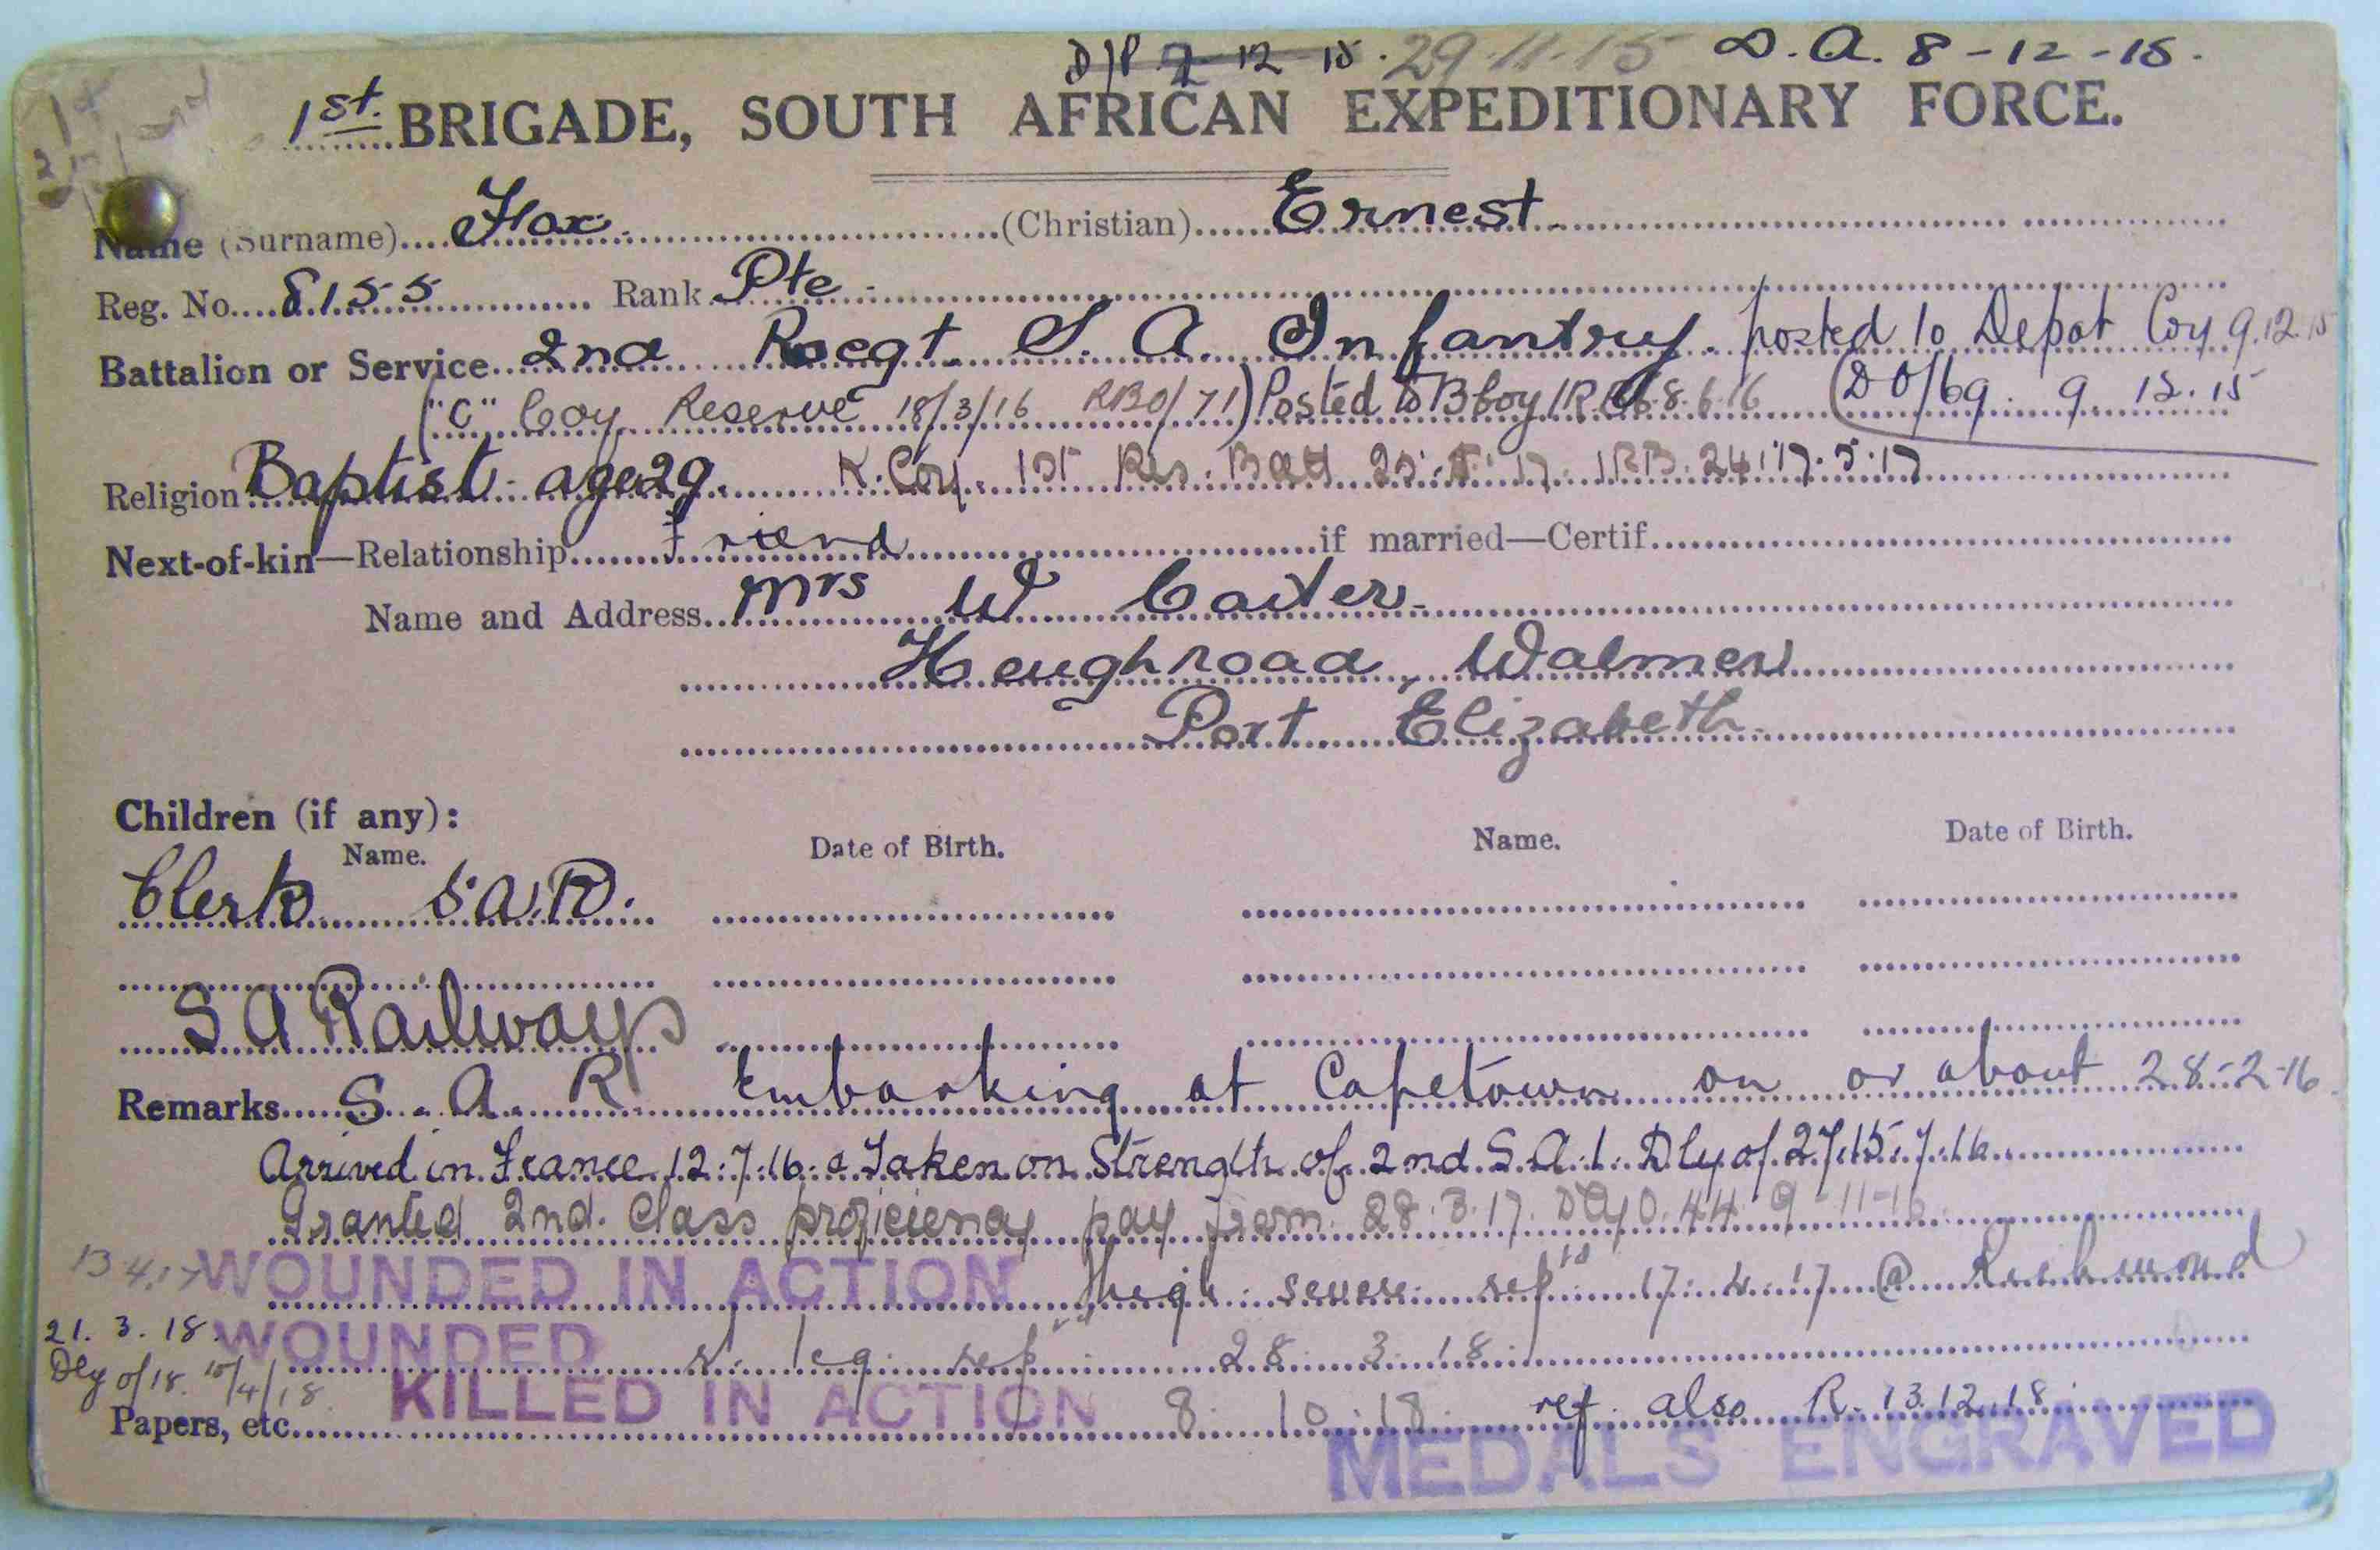 D/P 9-12-15. 29-11-15 D.A. 8-12-15.
1st. BRIGADE, SOUTH AFRICAN EXPEDITIONARY FORCE.
Name (Surname) Fox. (Christian) Ernest.
Reg. No. 8155 Rank Pte
Battalion or Service 2nd Regt. S. A. Infantry. posted to Depot Coy 9.12.15
("C" Coy Reserve 18/3/16 RBO/71) Posted to B Coy 8.6.16 (DO/69. 9.12.15
Religion Baptist age 29. K. Coy. 1st Res. Batt 17. 1RB. 24: 17.5.17
Next-of-kin—Relationship Friend if married—Certif.
Name and Address Mrs W Carter
Heugh road, Walmer
Port Elizabeth.
Children (if any):
Name. Date of Birth. Name. Date of Birth.
Clerk S.A.R.
S A Railways
Remarks S. A. R Embarking at Capetown on or about 28-2-16
Arrived in France 12:7:16: & Taken on Strength of 2nd. S.A.I. Dly of. 27:15:7:16
Granted 2nd. Class proficiency pay from 28.3.17. 44 9-11-16
13 4.17 WOUNDED IN ACTION Thigh severe. rept'd 17.4.17 @ Richmond
21. 3. 18. WOUNDED leg rep 28. 3. 18.
Dly of 18. 15/4/18. KILLED IN ACTION 8. 10. 18. ref. also R. 13.12.18.
Papers, etc.
MEDALS ENGRAVED